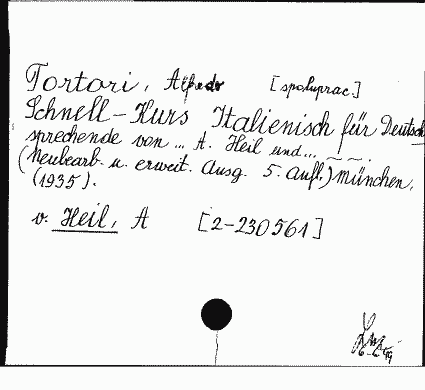 Tortori, Alfredo [spoluprac.]
Schnell-Kurs Italienisch für Deutsch
sprechende von ... A. Heil und ... ~ ~.
(Neubearb. u. erweit. Ausg. 5. Aufl.) München,
(1935).
v. Heil, A [2-230561]